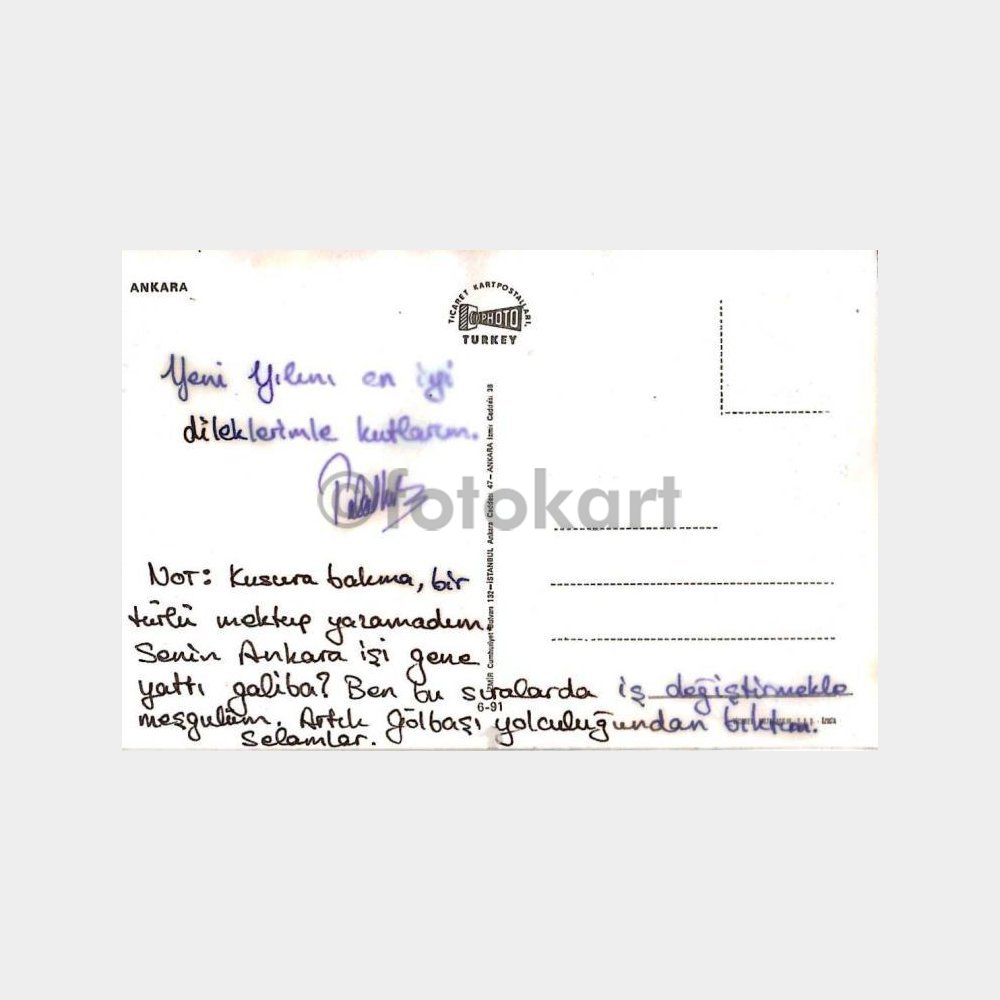 ANKARA
TICARET KARTPOSTALLARI,
PHOTO
TURKEY
Yeni Yılını en iyi
dileklerimle kutlarım.
©fotokart
NOT: Kusura bakma, bir
türlü mektup yazamadım.
Senin Ankara işi gene
yattı galiba? Ben bu sıralarda iş değiştirmekle
meşgulüm. Artık Gölbaşı yolculuğundan bıktım.
Selamlar.
İZMİR Cumhuriyet Bulvarı 132-İSTANBUL Ankara Caddesi 47-ANKARA İzmir Caddesi 38
6-91